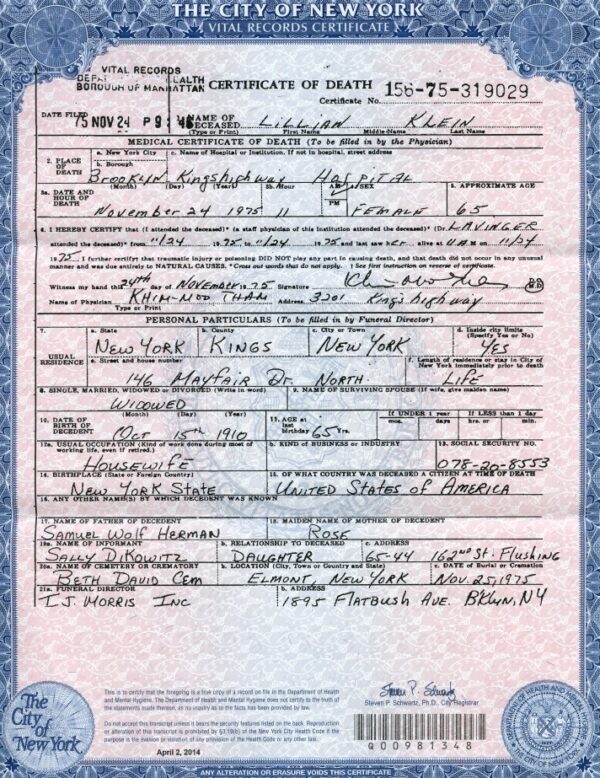 THE CITY OF NEW YORK
VITAL RECORDS CERTIFICATE
VITAL RECORDS
HEALTH
BOROUGH OF MANHATTAN
CERTIFICATE OF DEATH
Certificate No. 156-75-319029
DATE FILED
75 NOV 24 P 9 : 46
NAME OF DECEASED LILLIAN KLEIN
(Type or Print) First Name Middle Name Last Name
MEDICAL CERTIFICATE OF DEATH (To be filled in by the Physician)
2. PLACE OF DEATH
a. New York City
b. Borough
c. Name of Hospital or Institution. If not in hospital, street address
Brooklyn Kingshighway Hospital
3a. DATE AND HOUR OF DEATH
(Month) (Day) (Year) 3b. Hour AM PM
SEX
5. APPROXIMATE AGE
November 24 1975 11 FEMALE 65
4. I HEREBY CERTIFY that (I attended the deceased)* (a staff physician of this institution attended the deceased)* (Dr. LAVINGER
attended the deceased)* from 11/24 1975 to 11/24 1975 and last saw her alive at on 11/24
1975. I further certify that traumatic injury or poisoning DID NOT play any part in causing death, and that death did not occur in any unusual
manner and was due entirely to NATURAL CAUSES. *Cross out words that do not apply. † See first instruction on reverse of certificate.
Witness my hand this 24th day of NOVEMBER 1975 Signature D.O. M.D.
Name of Physician KHIN-MOO THAN Address 3201 Kings highway
Type or Print
PERSONAL PARTICULARS (To be filled in by Funeral Director)
7. USUAL RESIDENCE
a. State
b. County
c. City or Town
d. Inside city limits (Specify Yes or No)
NEW YORK KINGS NEW YORK YES
e. Street and house number
f. Length of residence or stay in City of New York immediately prior to death
146 Mayfair Dr. North LIFE
8. SINGLE, MARRIED, WIDOWED or DIVORCED (Write in word)
9. NAME OF SURVIVING SPOUSE (If wife, give maiden name)
WIDOWED
10. DATE OF BIRTH OF DECEDENT
(Month) (Day) (Year)
11. AGE at last birthday
If UNDER 1 year mos. days
If LESS than 1 day hrs. or min.
Oct 15th 1910 65 Yrs.
12a. USUAL OCCUPATION (Kind of work done during most of working life, even if retired.)
b. KIND OF BUSINESS OR INDUSTRY
13. SOCIAL SECURITY NO.
HOUSEWIFE 078-20-8553
14. BIRTHPLACE (State or Foreign Country)
15. OF WHAT COUNTRY WAS DECEASED A CITIZEN AT TIME OF DEATH
NEW YORK STATE UNITED STATES of AMERICA
16. ANY OTHER NAME(S) BY WHICH DECEDENT WAS KNOWN
17. NAME OF FATHER OF DECEDENT
18. MAIDEN NAME OF MOTHER OF DECEDENT
SAMUEL WOLF HERMAN ROSE
19a. NAME OF INFORMANT
b. RELATIONSHIP TO DECEASED
c. ADDRESS
SALLY DIKOWITZ DAUGHTER 65-44 162nd St. Flushing
20a. NAME OF CEMETERY OR CREMATORY
b. LOCATION (City, Town or Country and State)
c. DATE of Burial or Cremation
BETH DAVID CEM ELMONT, NEW YORK NOV. 25, 1975
21a. FUNERAL DIRECTOR
b. ADDRESS
I.J. MORRIS INC 1895 FLATBUSH AVE. B'KLYN, NY
The City of New York
This is to certify that the foregoing is a true copy of a record on file in the Department of Health
and Mental Hygiene. The Department of Health and Mental Hygiene does not certify to the truth of
the statements made thereon, as no inquiry as to the facts has been provided by law.
Do not accept this transcript unless it bears the security features listed on the back. Reproduction
or alteration of this transcript is prohibited by §3.19(b) of the New York City Health Code if the
purpose is the evasion or violation of any provision of the Health Code or any other law.
April 2, 2014
Steven P. Schwartz
Steven P. Schwartz, Ph.D., City Registrar
Q00981348
ANY ALTERATION OR ERASURE VOIDS THIS CERTIFICATE